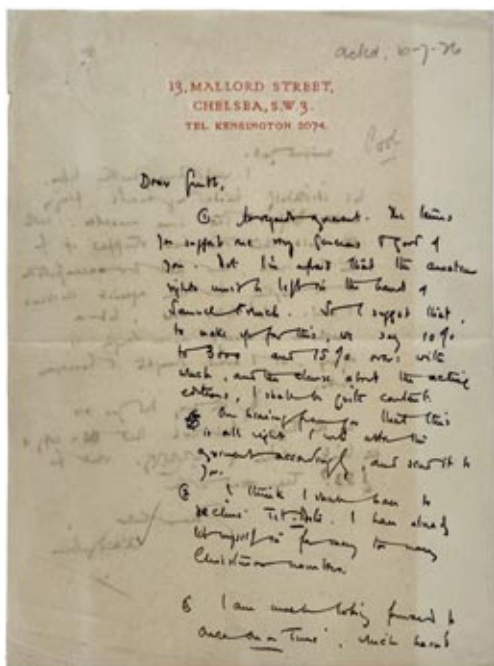 ackd. 6-7-26
13, MALLORD STREET,
CHELSEA, S.W.3.
TEL. KENSINGTON 2074.
Dear Smith,
agreement. The terms
you suggest are very generous & good of
you. But I'm afraid that the amateur
rights must be left in the hands of
Samuel French. So I suggest that,
to make up for this, we say 10%
to 3000 and 15% over: with
which, and the clause about the acting
editions, I shall be quite content.
On hearing from you that this
is all right I will alter the
agreement accordingly, and send it to
you.
I think I shall have to
decline. I have already
let myself in for many too many
Christmas numbers.
I am much looking forward to
Once on a Time', which hasn't